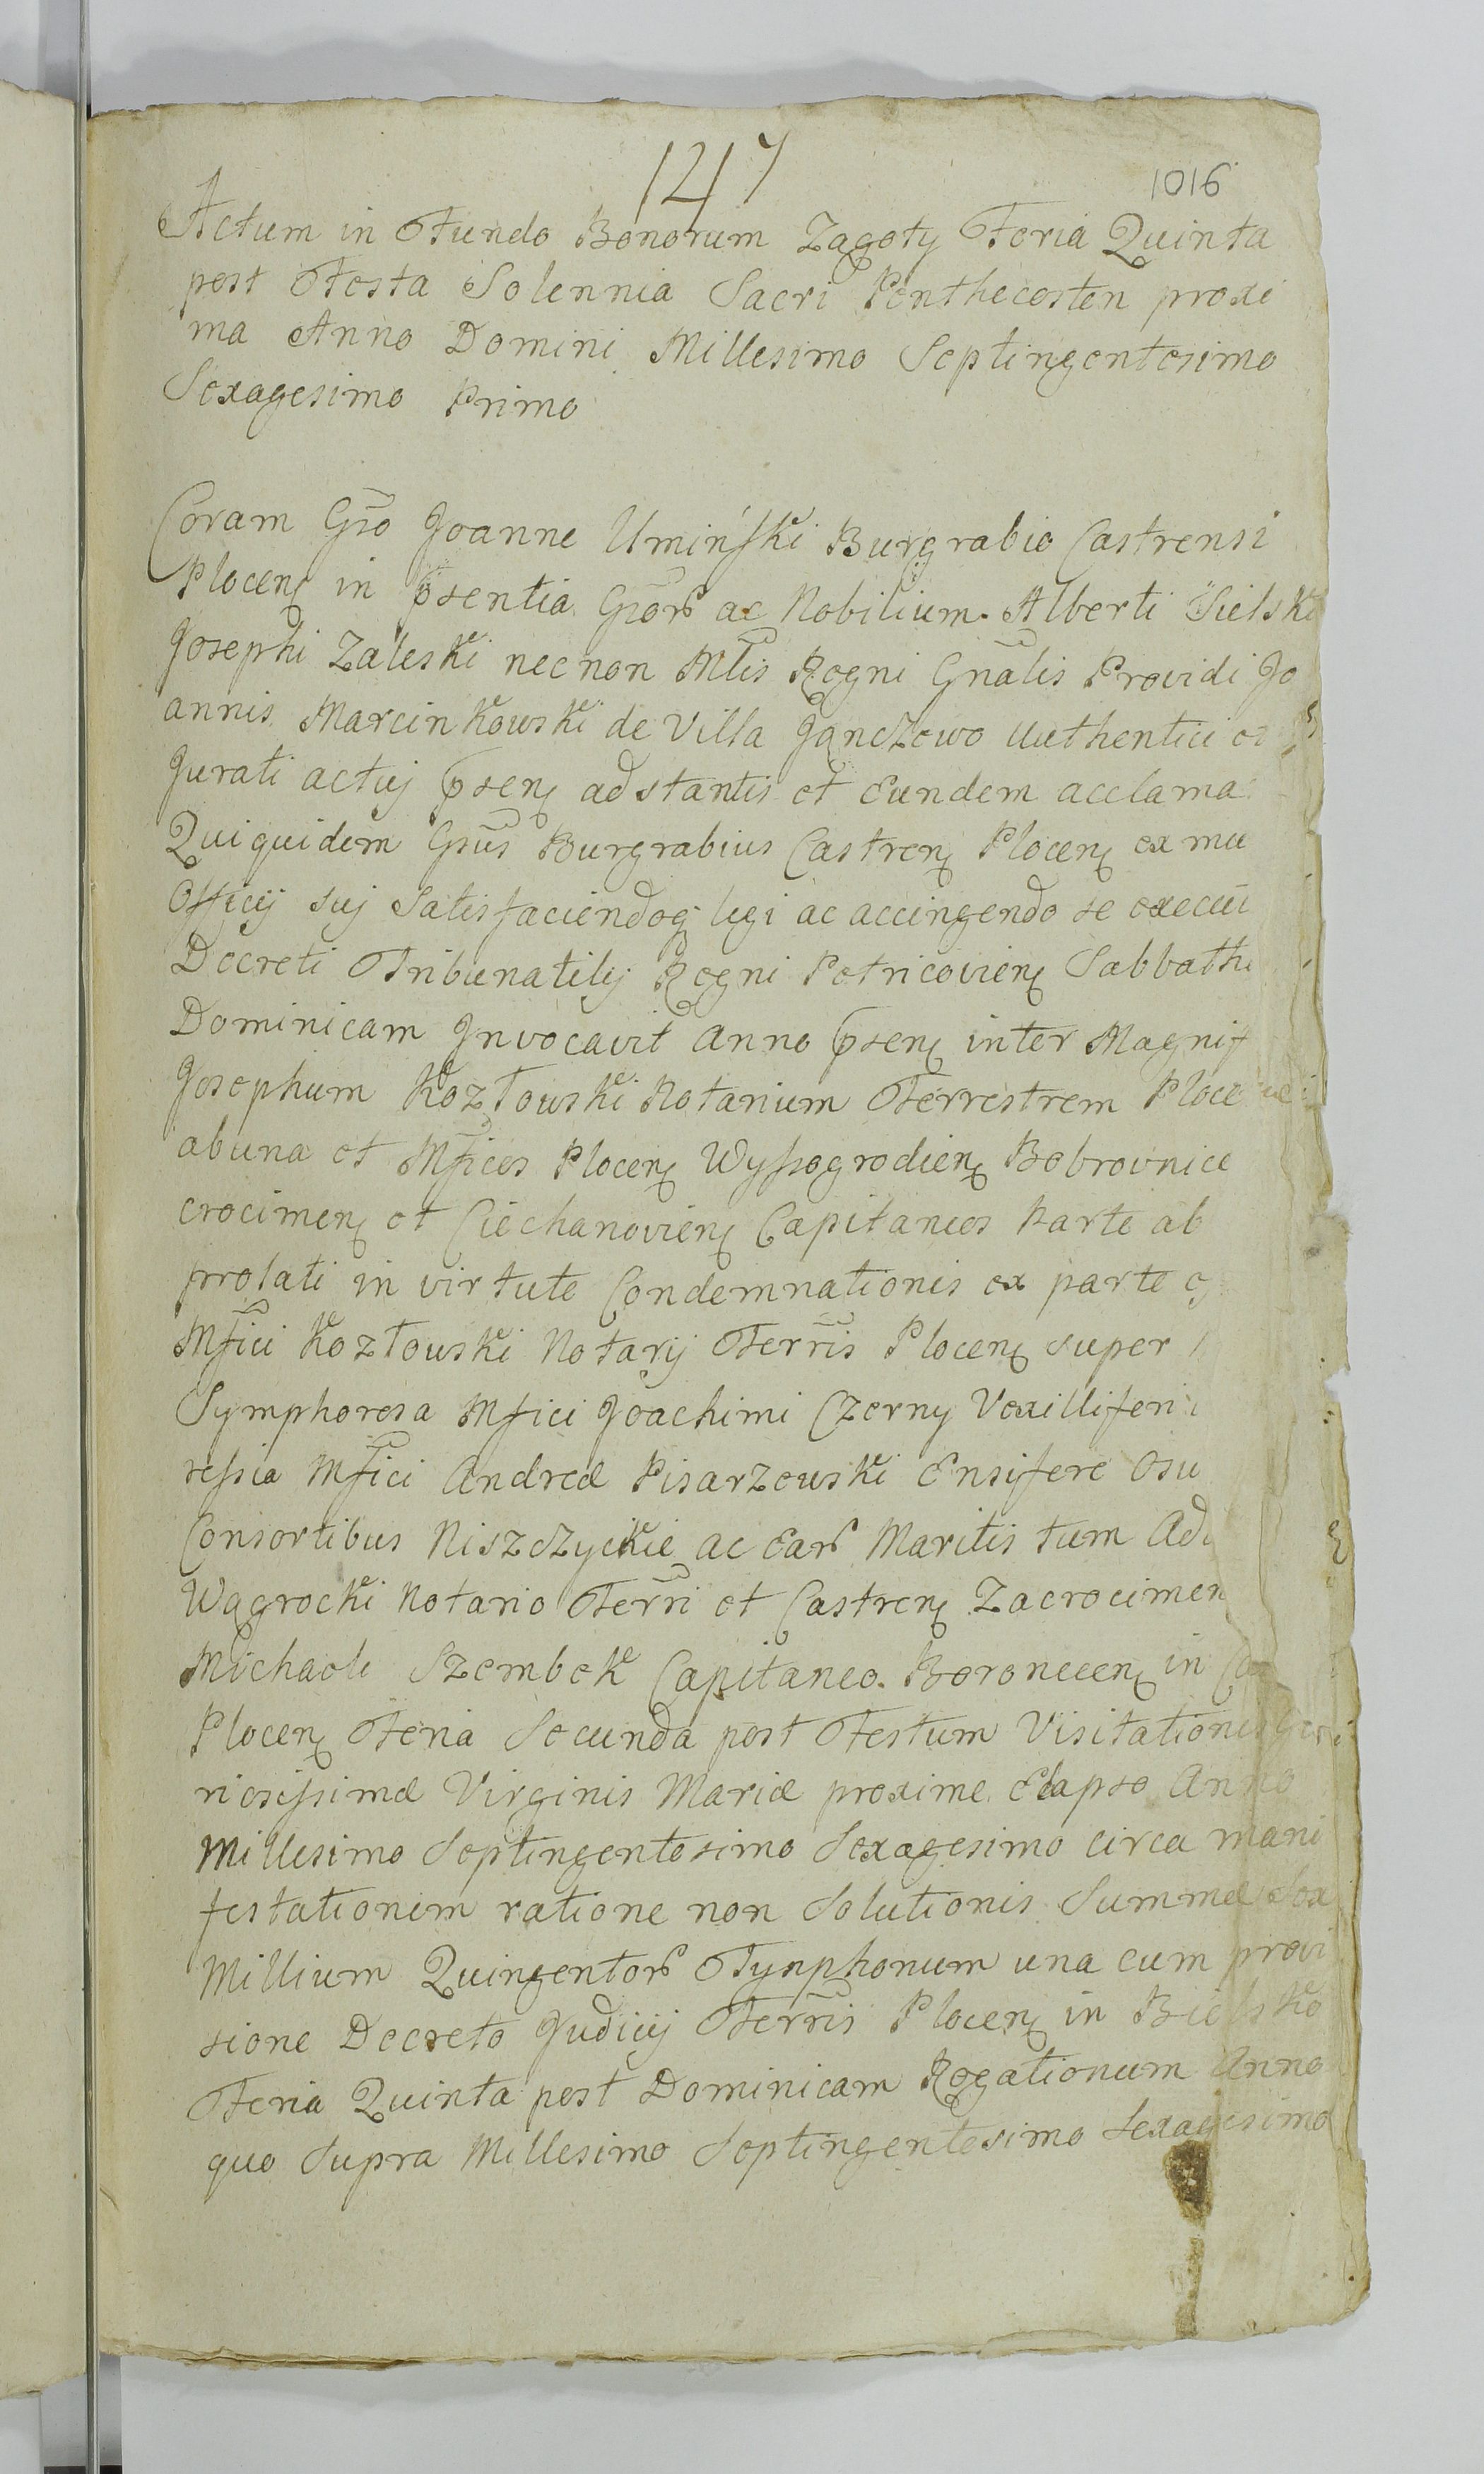 147
1016
Actum in Fundo Bonorum Zągoty Feria Quinta
post Festa Solennia Sacri Penthecosten proxi
ma Anno Domini Millesimo Septingentesimo
Sexagesimo Primo
Coram Gso Joanne Umiński Burgrabio Castrensi
Plocen in psentia Gsor ac Nobilium Alberti Sielski
Josephi Zaleski necnon Mlis Regni Gnalis Providi Jo
annis Marcinkowski de Villa Janczewo Authentici
Jurati actuj psen adstantis et Eundem acclama
Quiquidem Gsus Burgrabius Castren Plocen ex mu
Officij suj Satisfaciendoq legi ac accingendo se execui
Decreti Tribunalily Regni Petricovien Sabbatho
Dominicam Invocavit Anno psen inter Magnif
Josephum Kozłowski Notarium Terrestrem Ploce
abuna et Mficos Plocen Wyssogrodien Bobrovnice
crocimen et Ciechanovien Capitaneos Parte ab
prolati in virtute Condemnationis ex parte
Mfici Kozłowski Notarij Terris Plocen super
Symphorosa Mfici Joachimi Czerny Vexilliferi
ressia Mfici Andreæ Pisarzewski Ensifere
Consortibus Niszczyckie ac Ear Maritis tum
Wągrocki Notario Terri et Castren Zacrocimen
Michaele Szembek Capitaneo Boroneen in
Plocen Feria Secunda post Festum Visitationis
riosissimæ Virginis Mariæ proxime Elapso Anno
Millesimo Septingentesimo Sexagesimo circa mani
festationem ratione non Solutionis Summæ Sex
Millium Quingentor Tynphonum una cum provi
sione Decreto Judicij Terris Plocen in Bielsko
Feria Quinta post Dominicam Rogationum Anno
quo Supra Millesimo Septingentesimo Sexagesimo